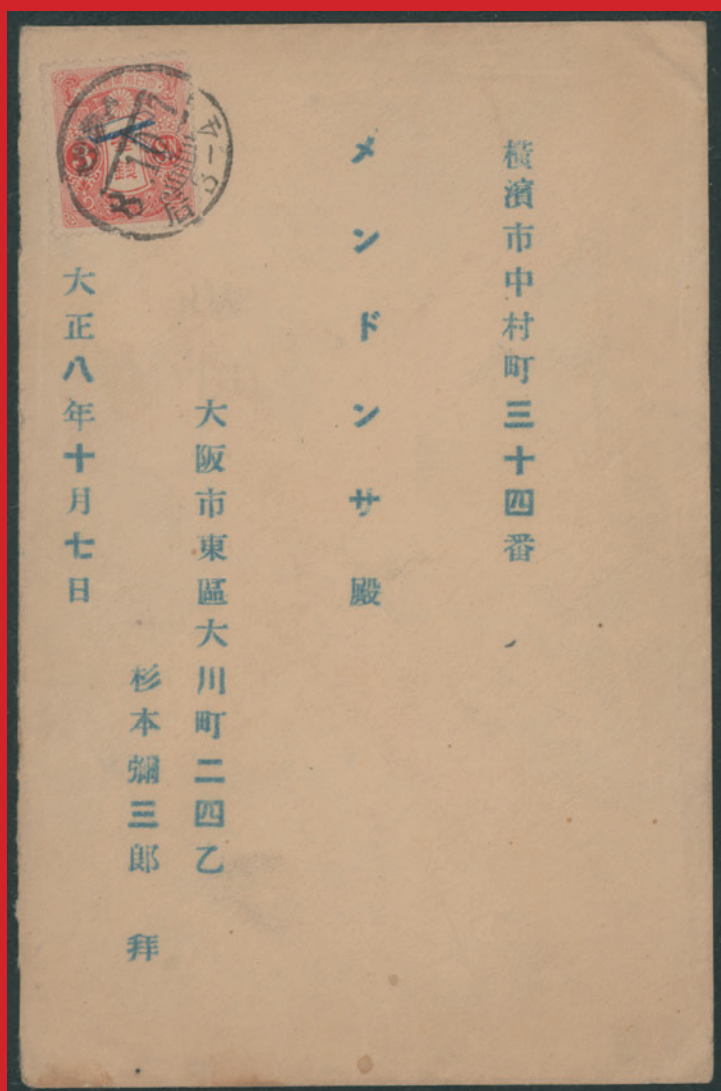 横濱市中村町三十四番
メンドンサ殿
大阪市東區大川町二四乙
杉本彌三郎 拜
大正八年十月七日
3
8.10.7